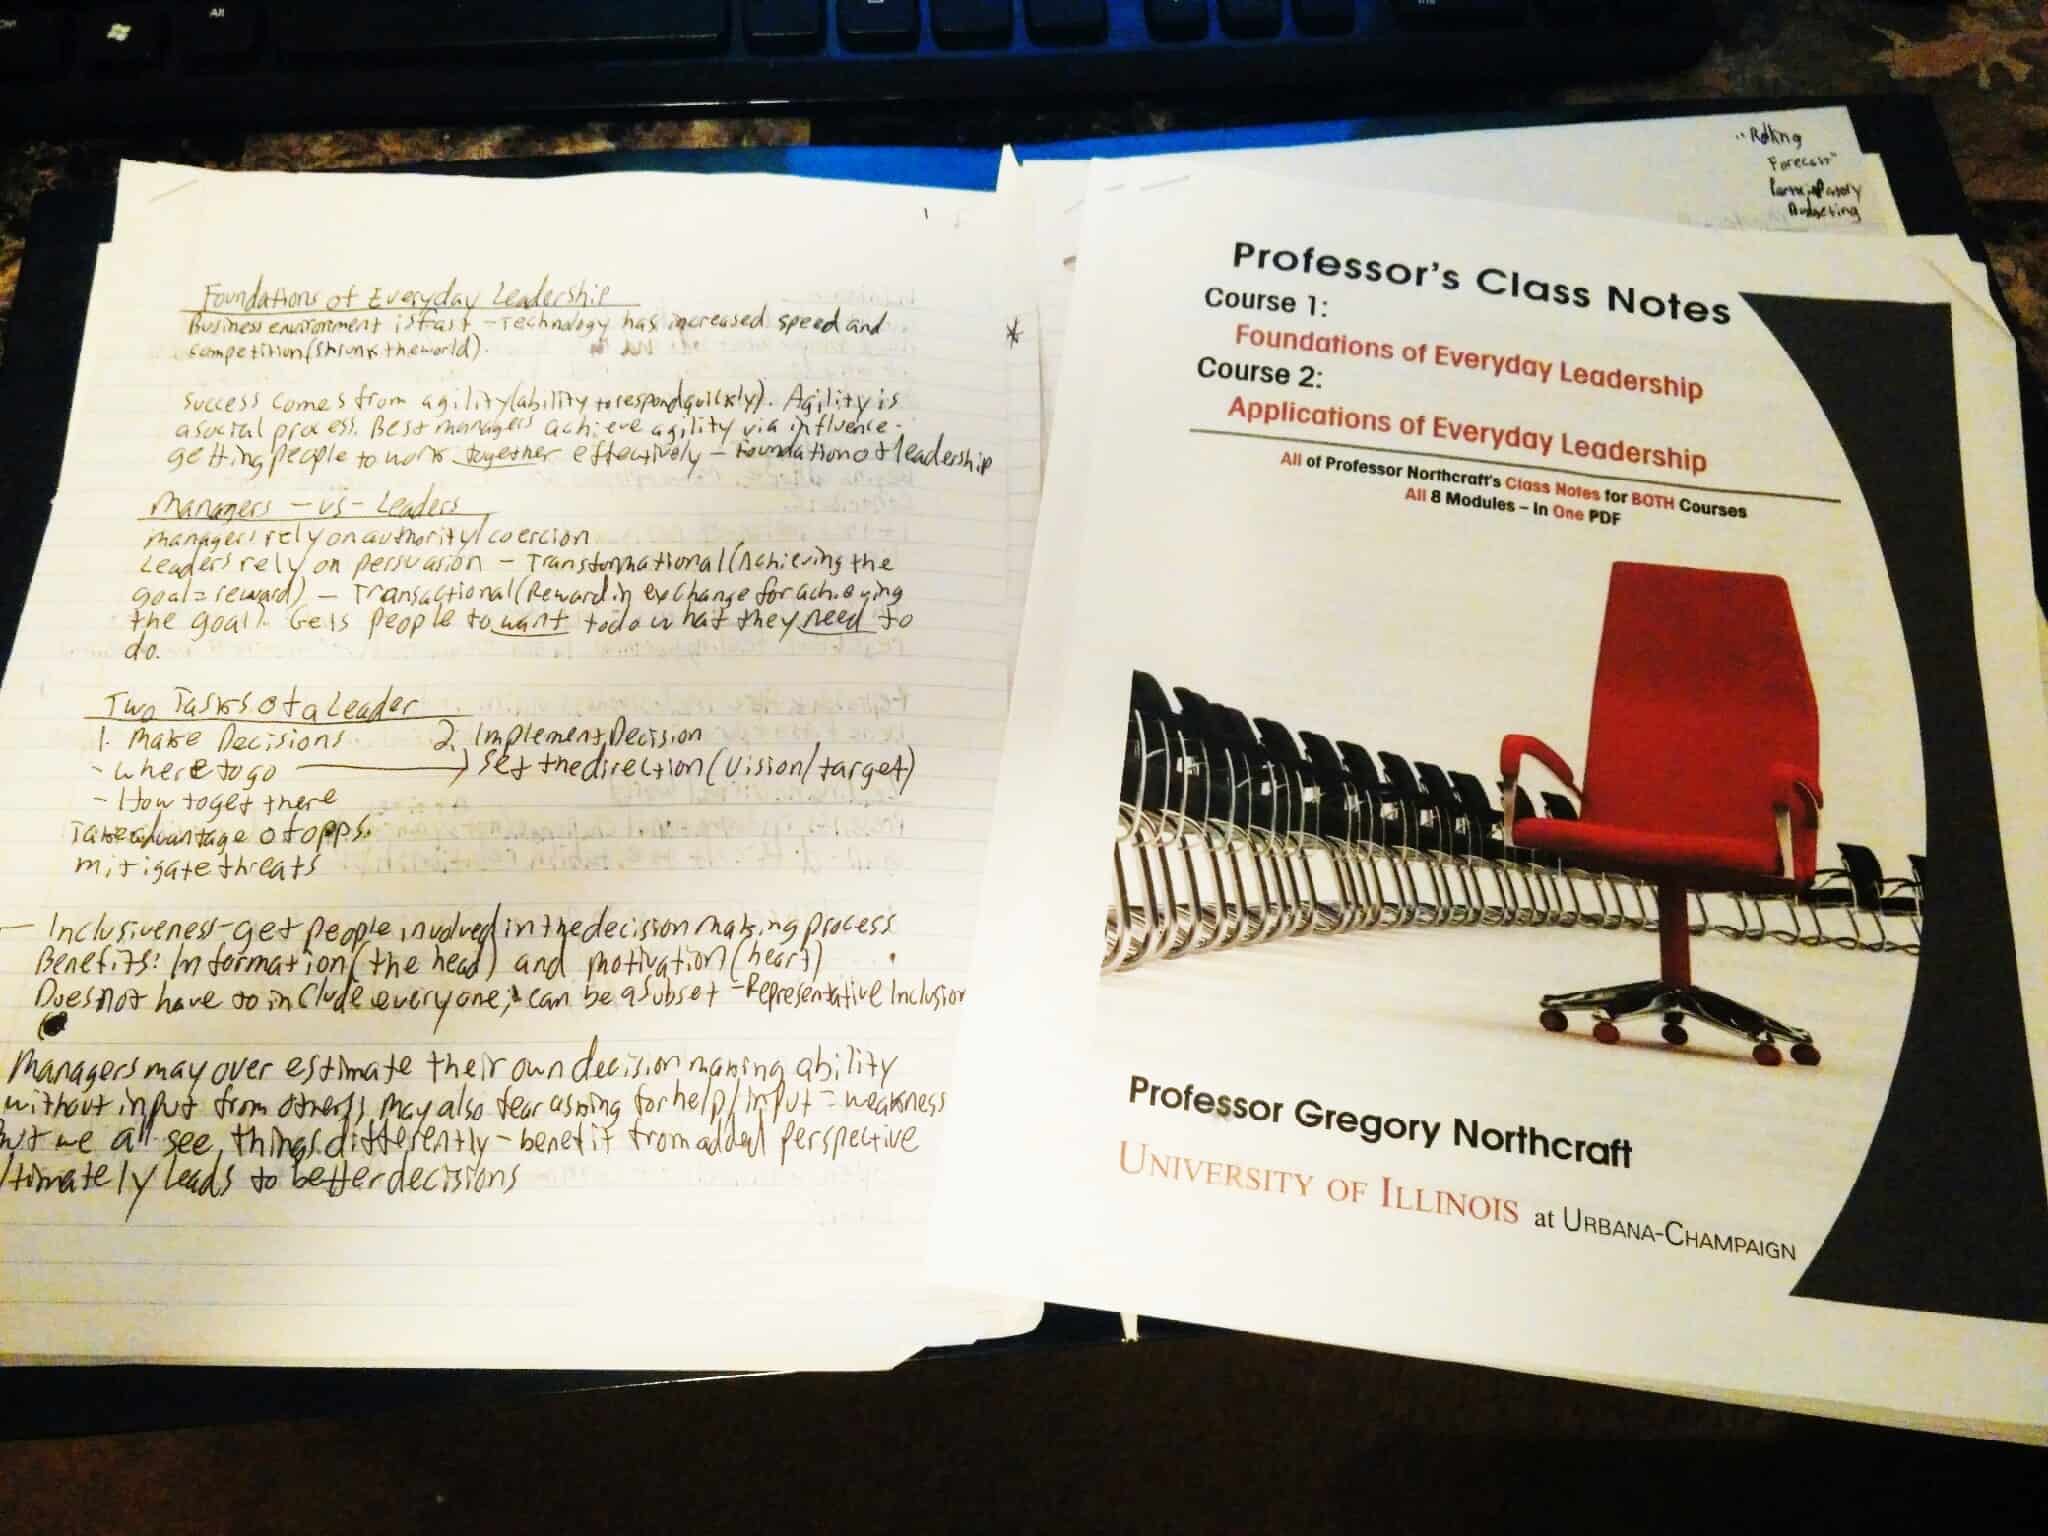 Foundations of Everyday Leadership
Business environment is fast - Technology has increased speed and
competition (shrunk the world).
success comes from agility (ability to respond quickly). Agility is
a social process. Best managers achieve agility via influence -
getting people to work together effectively - foundation of leadership
Managers - vs - Leaders
managers rely on authority/coercion
Leaders rely on persuasion - Transformational (Achieving the
goal = reward) - Transactional (Reward in exchange for achieving
the goal). Gets people to want to do what they need to
do.
Two Tasks of a Leader
1. Make Decisions 2. Implement Decision
- where to go set the direction (vision/target)
- How to get there
Take advantage of opps.
mitigate threats
- Inclusiveness - get people involved in the decision making process
Benefits: Information (the head) and motivation (heart)
Does not have to include everyone; can be a subset - Representative Inclusion
Managers may over estimate their own decision making ability
without input from others, may also fear asking for help/input = weakness
but we all see things differently - benefit from added perspective
ltimately leads to better decisions
"Rolling
Forecast"
Participatory
Budgeting
Professor's Class Notes
Course 1:
Foundations of Everyday Leadership
Course 2:
Applications of Everyday Leadership
All of Professor Northcraft's Class Notes for BOTH Courses
All 8 Modules – In One PDF
Professor Gregory Northcraft
UNIVERSITY OF ILLINOIS at URBANA-CHAMPAIGN